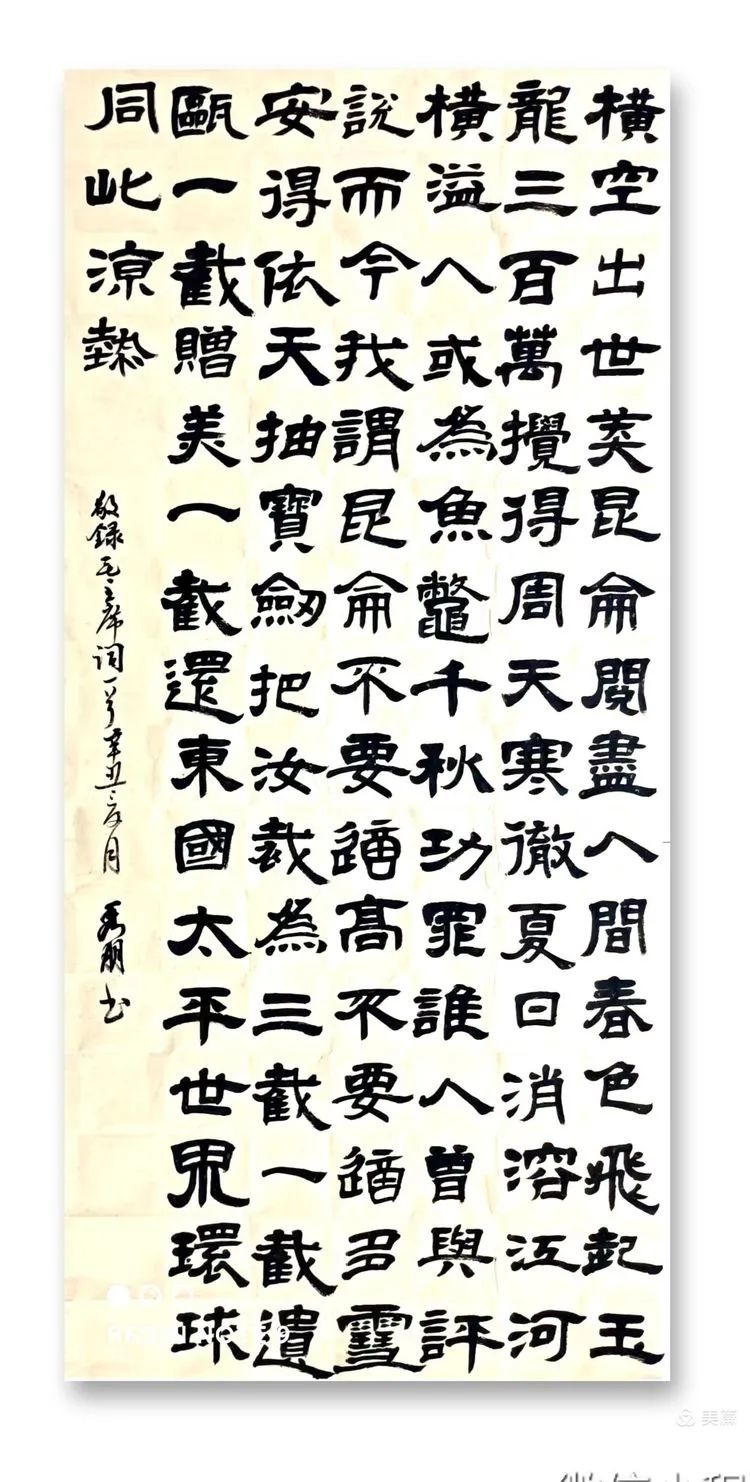 橫空出世莽昆侖閱盡人間春色飛起玉
龍三百萬攪得周天寒徹夏日消溶江河
橫溢人或為魚鱉千秋功罪誰人曾與評
說而今我謂昆侖不要這高不要這多雪
安得依天抽寶劍把汝裁為三截一截遺
甌一截贈美一截還東國太平世界環球
同此涼熱
敬録毛主席词一首辛丑月
朋书
REDMI NOTE 9
美篇